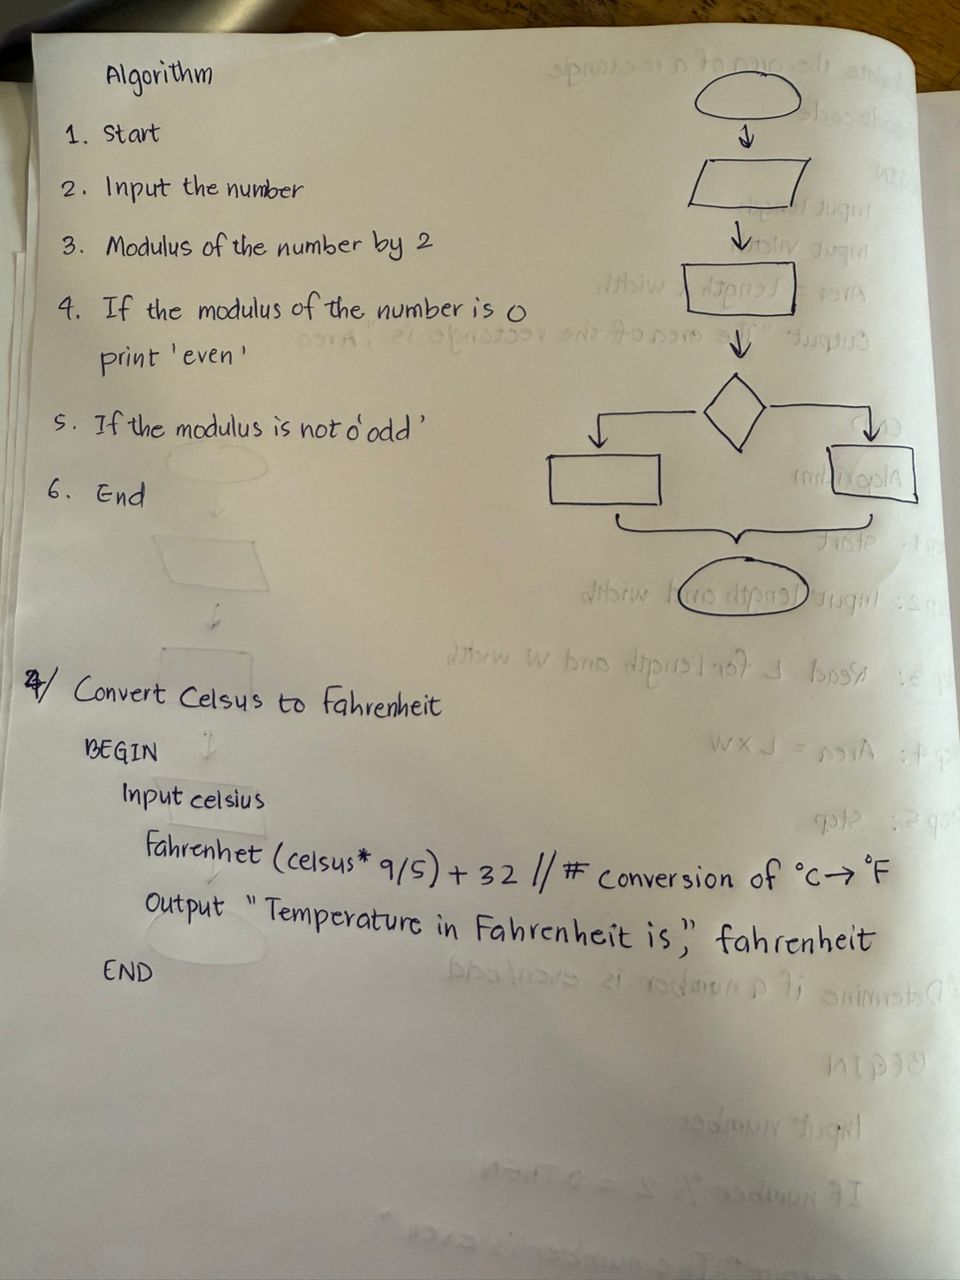 Algorithm
1. Start
2. Input the number
3. Modulus of the number by 2
4. If the modulus of the number is 0
print 'even'
5. If the modulus is not 0 'odd'
6. End
/ Convert Celsus to Fahrenheit
BEGIN
Input celsius
Fahrenhet (celsus* 9/5) + 32 // # conversion of °C→°F
Output "Temperature in Fahrenheit is," fahrenheit
END